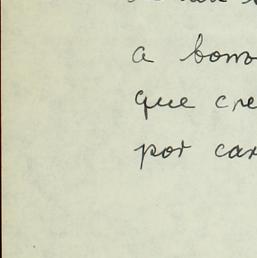 a bom
que cre
por car